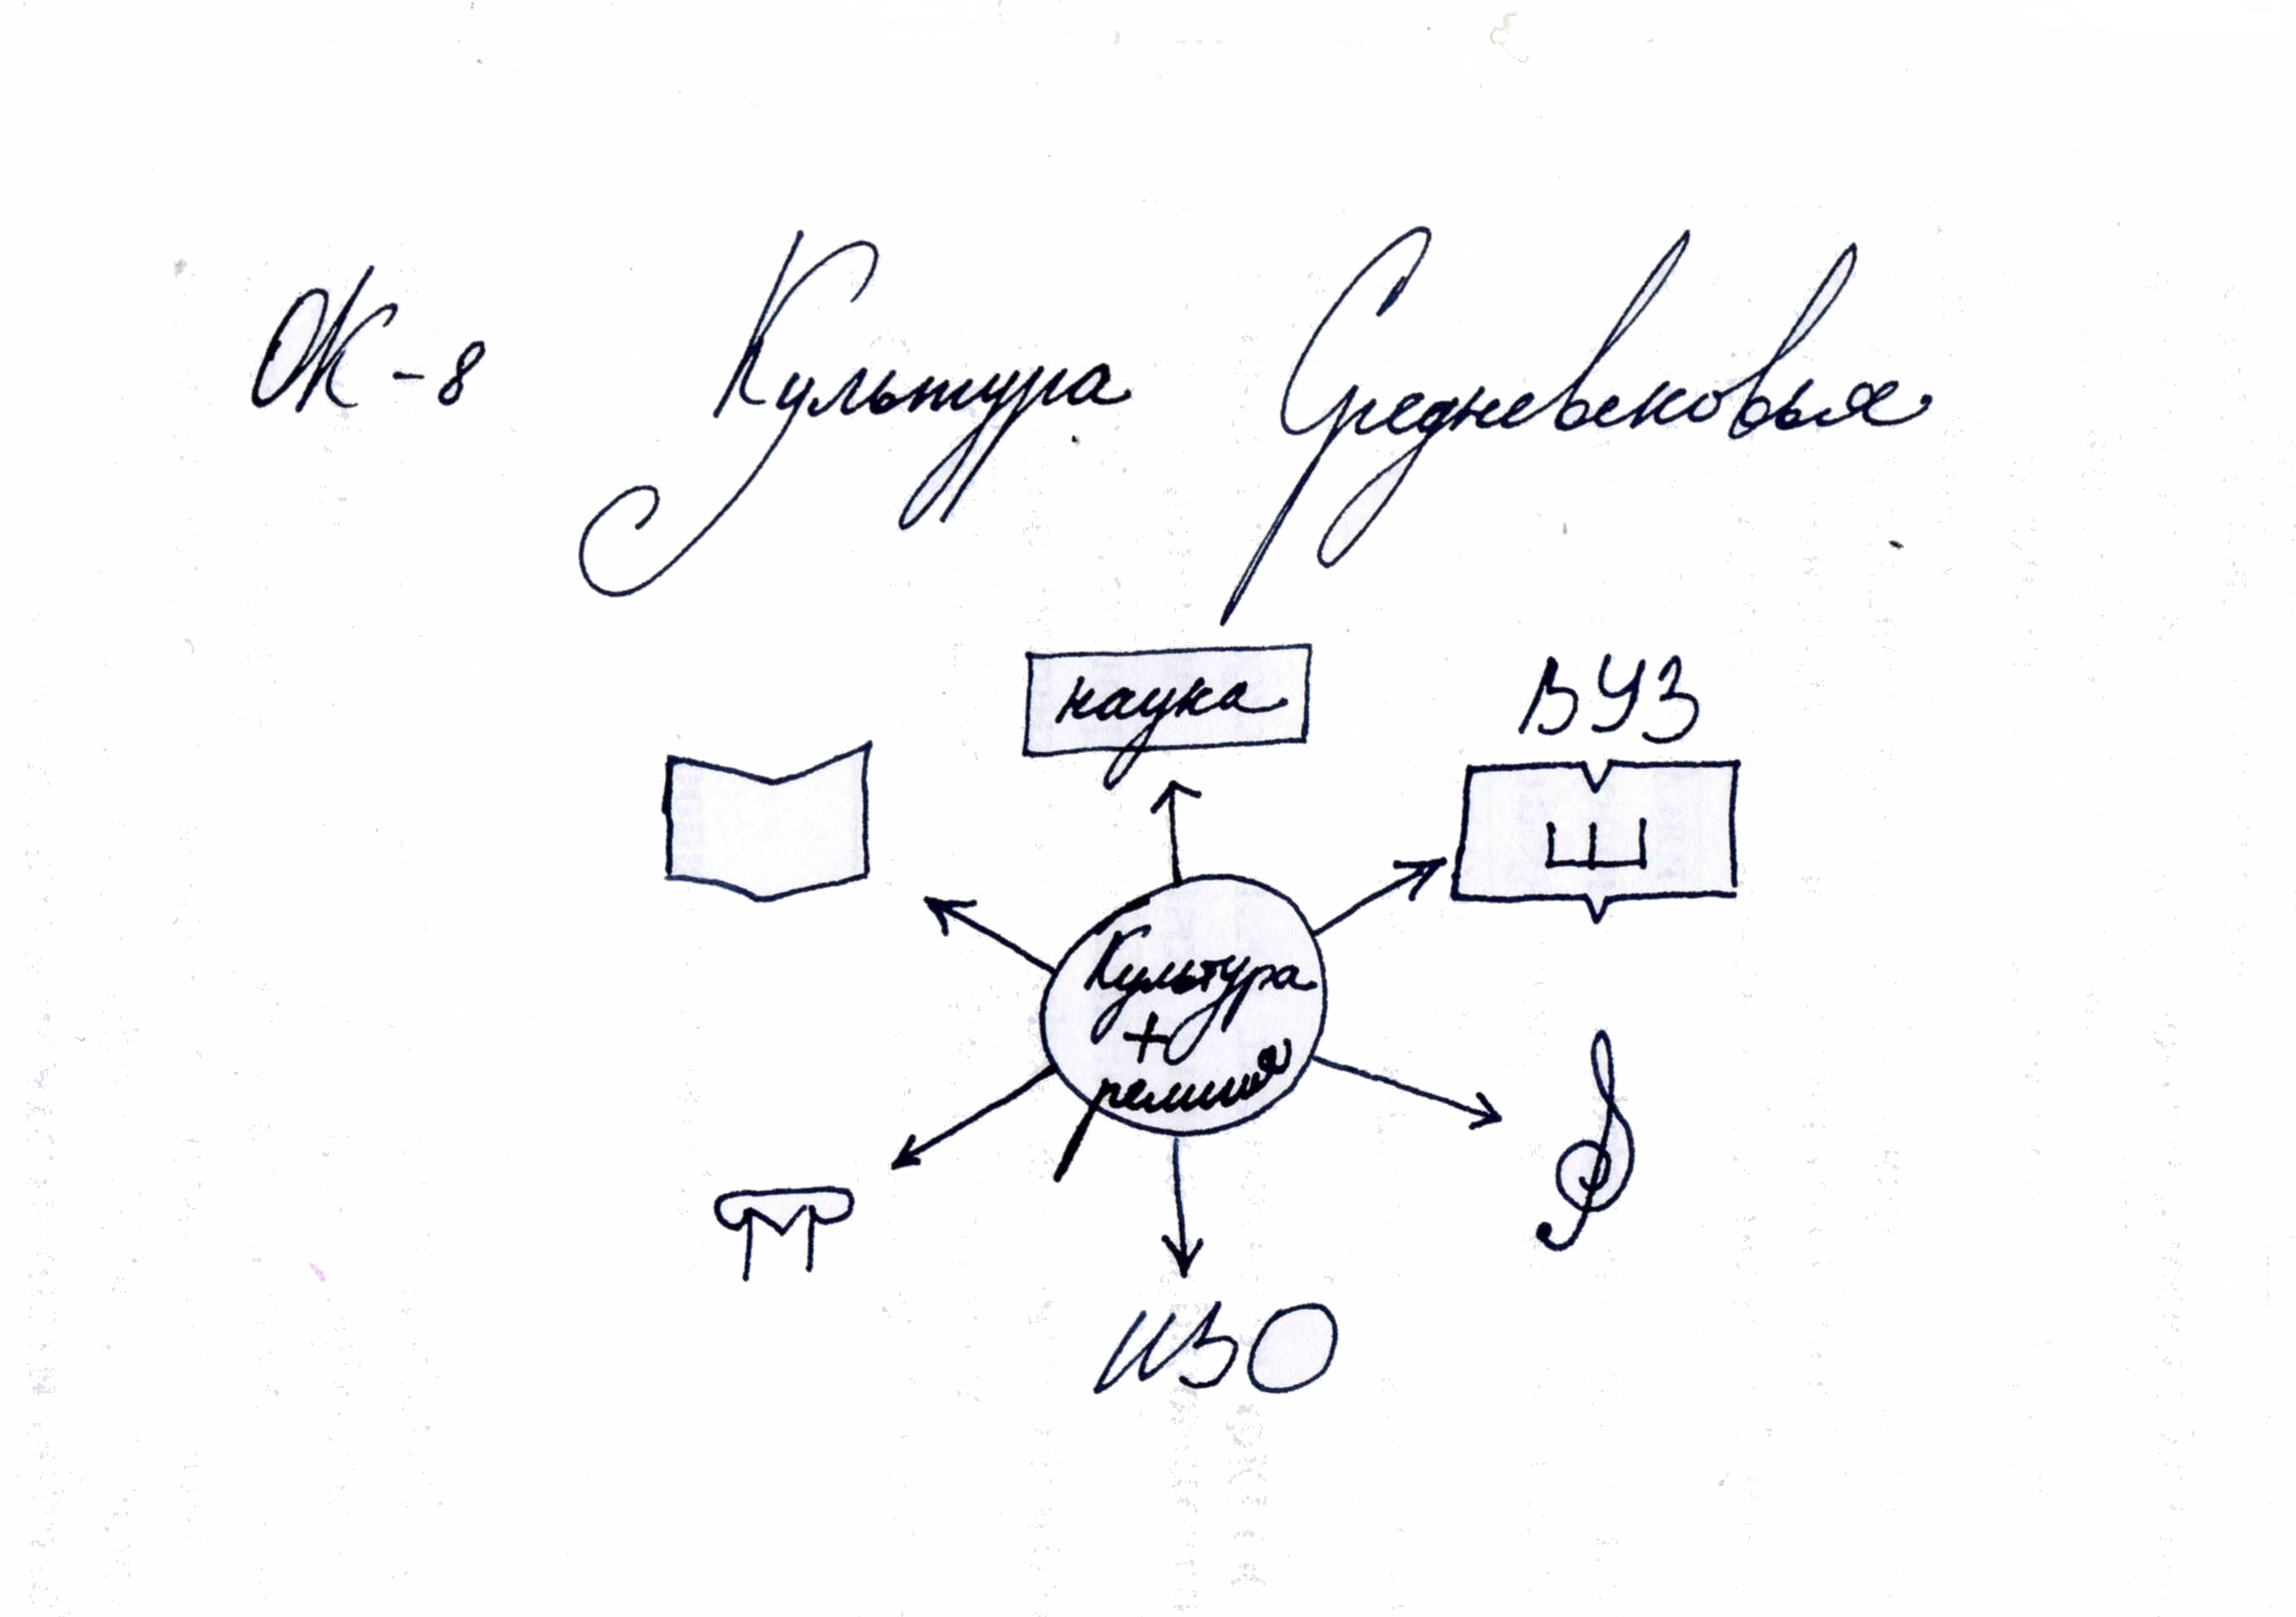 ОК-8 Культура Средневековья
наука
ВУЗ
Ш
Культура
+
религия
ИЗО